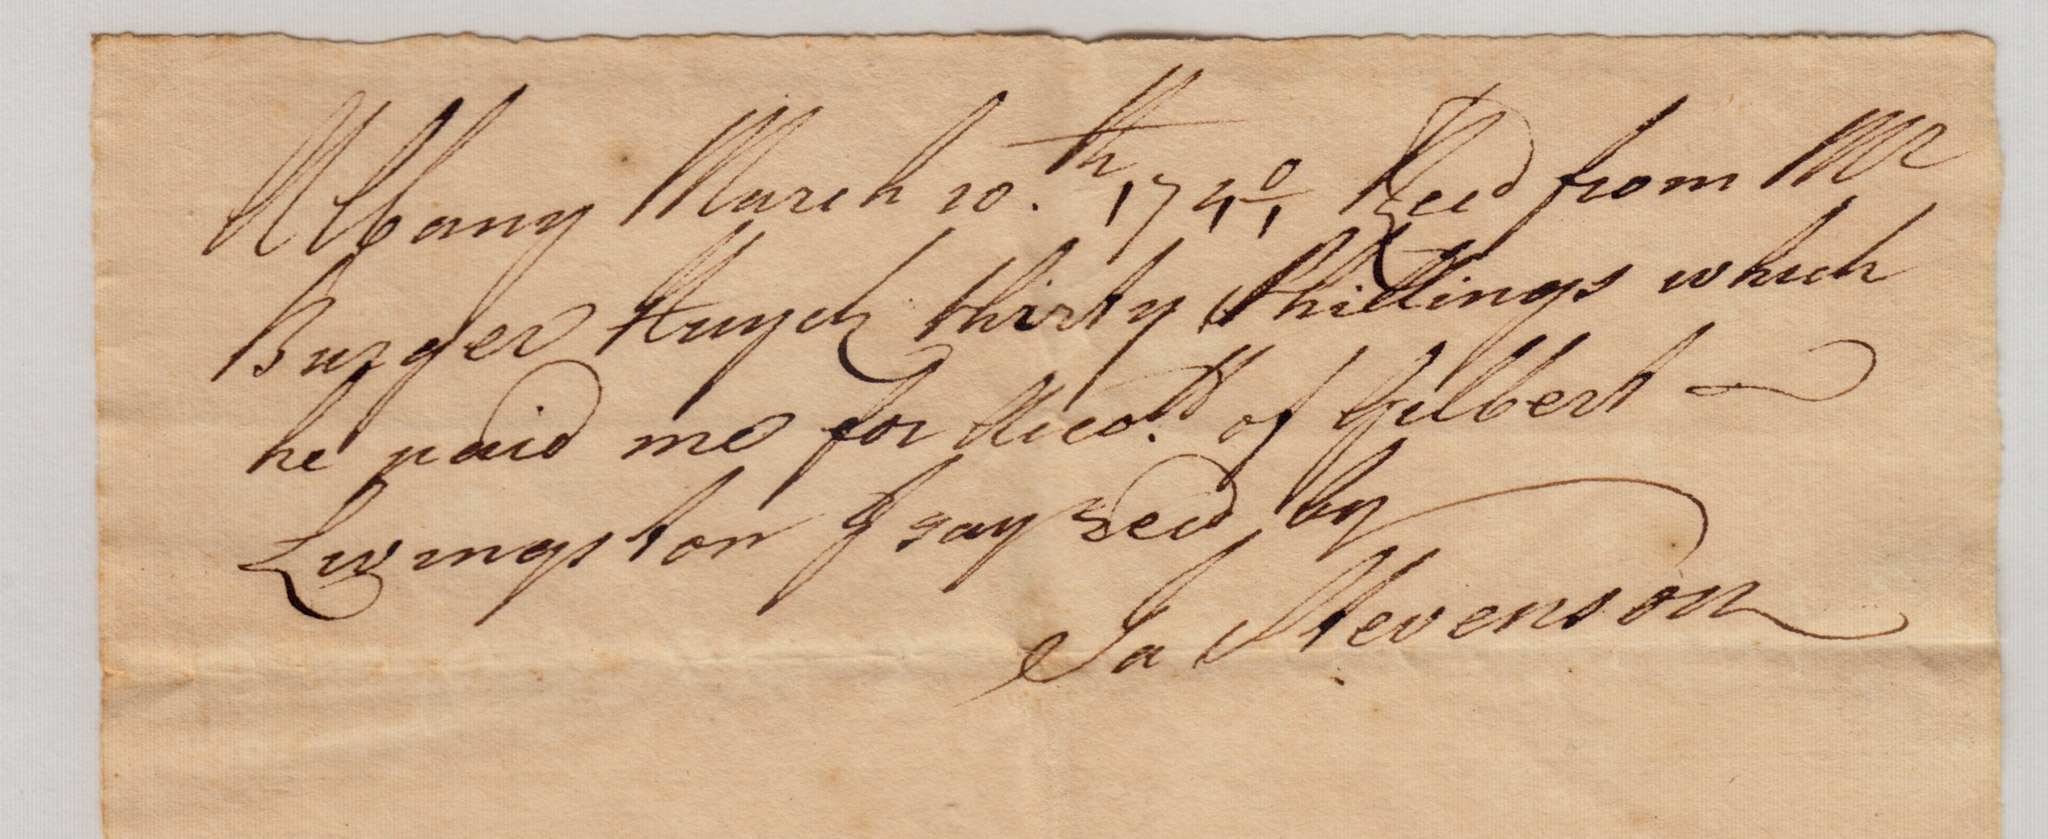 Albany March 10.th 174 0/1 Recd from Mr
Burger Huyck thirty Shillings which
he paid me for Acco.tt of Gilbert
Livingston I say Recd by
Ja Stevenson